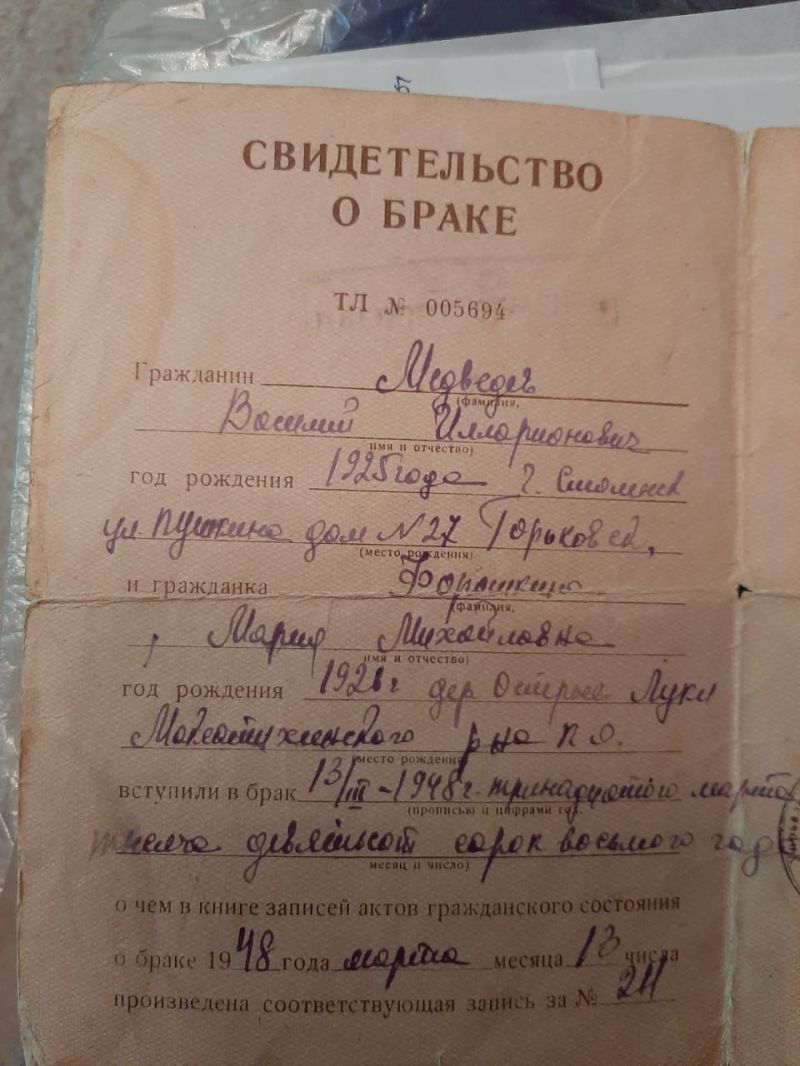 СВИДЕТЕЛЬСТВО
О БРАКЕ
ТЛ № 005694
Гражданин Медведев
(фамилия,
Василий Илларионович
имя и отчество)
год рождения 1925 года г. Смоленск
ул Пушкина дом N 27 Горьковск,
(место рождения)
и гражданка
(фамилия,
Мария Михайловна
имя и отчество)
год рождения 192 г дер Острые Луки
р на
(место рождения)
вступили в брак 13/III – 1948 г. тринадцатого марта
(прописью и цифрами год,
тысяча девятьсот сорок восьмого год
месяц и число)
о чем в книге записей актов гражданского состояния
о браке 1948 года марта месяца 13 числа
произведена соответствующая запись за №